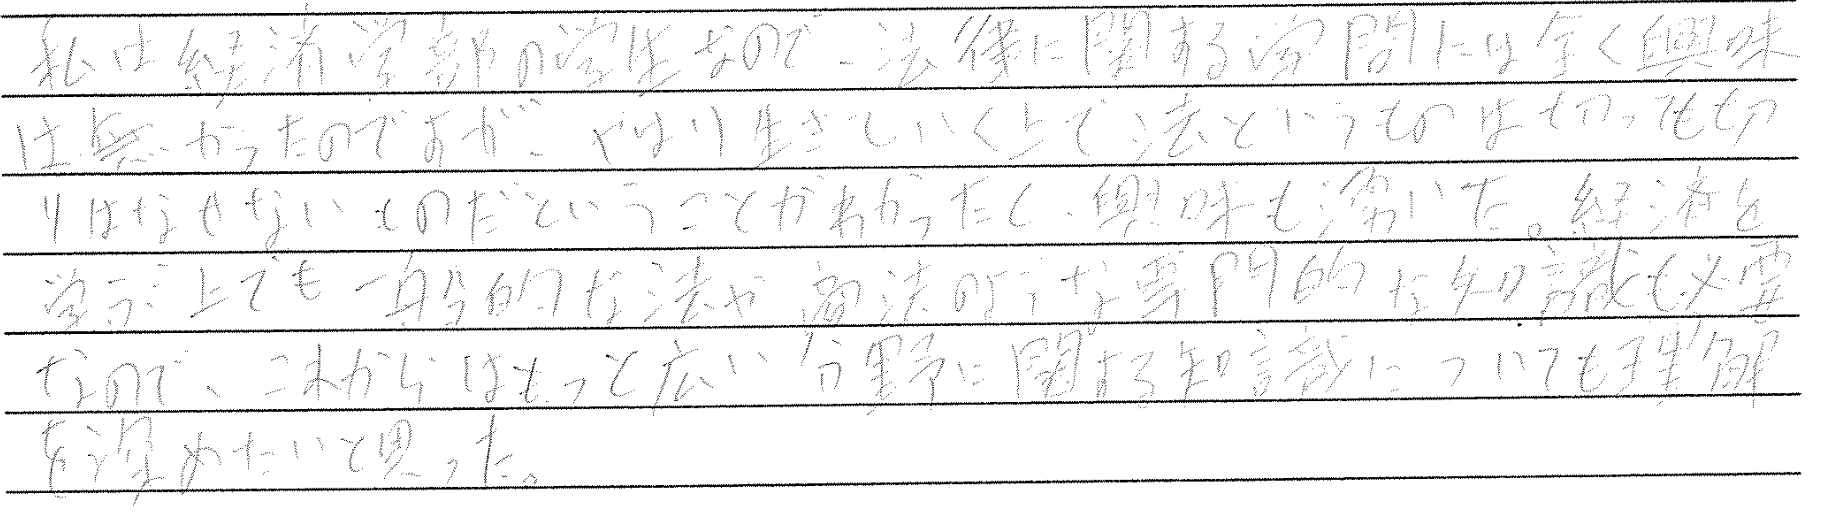 私は経済学部の学生なので、法律に関する学問には全く興味
は無かったのですが、やはり生きていく上で法というものは切っても切
りはなせないものだということがわかったし、興味も湧いた。経済を
学ぶ上でも一般的な法や商法のような専門的な知識も必要
なので、これからはもっと広い分野に関する知識についても理解
を深めたいと思った。